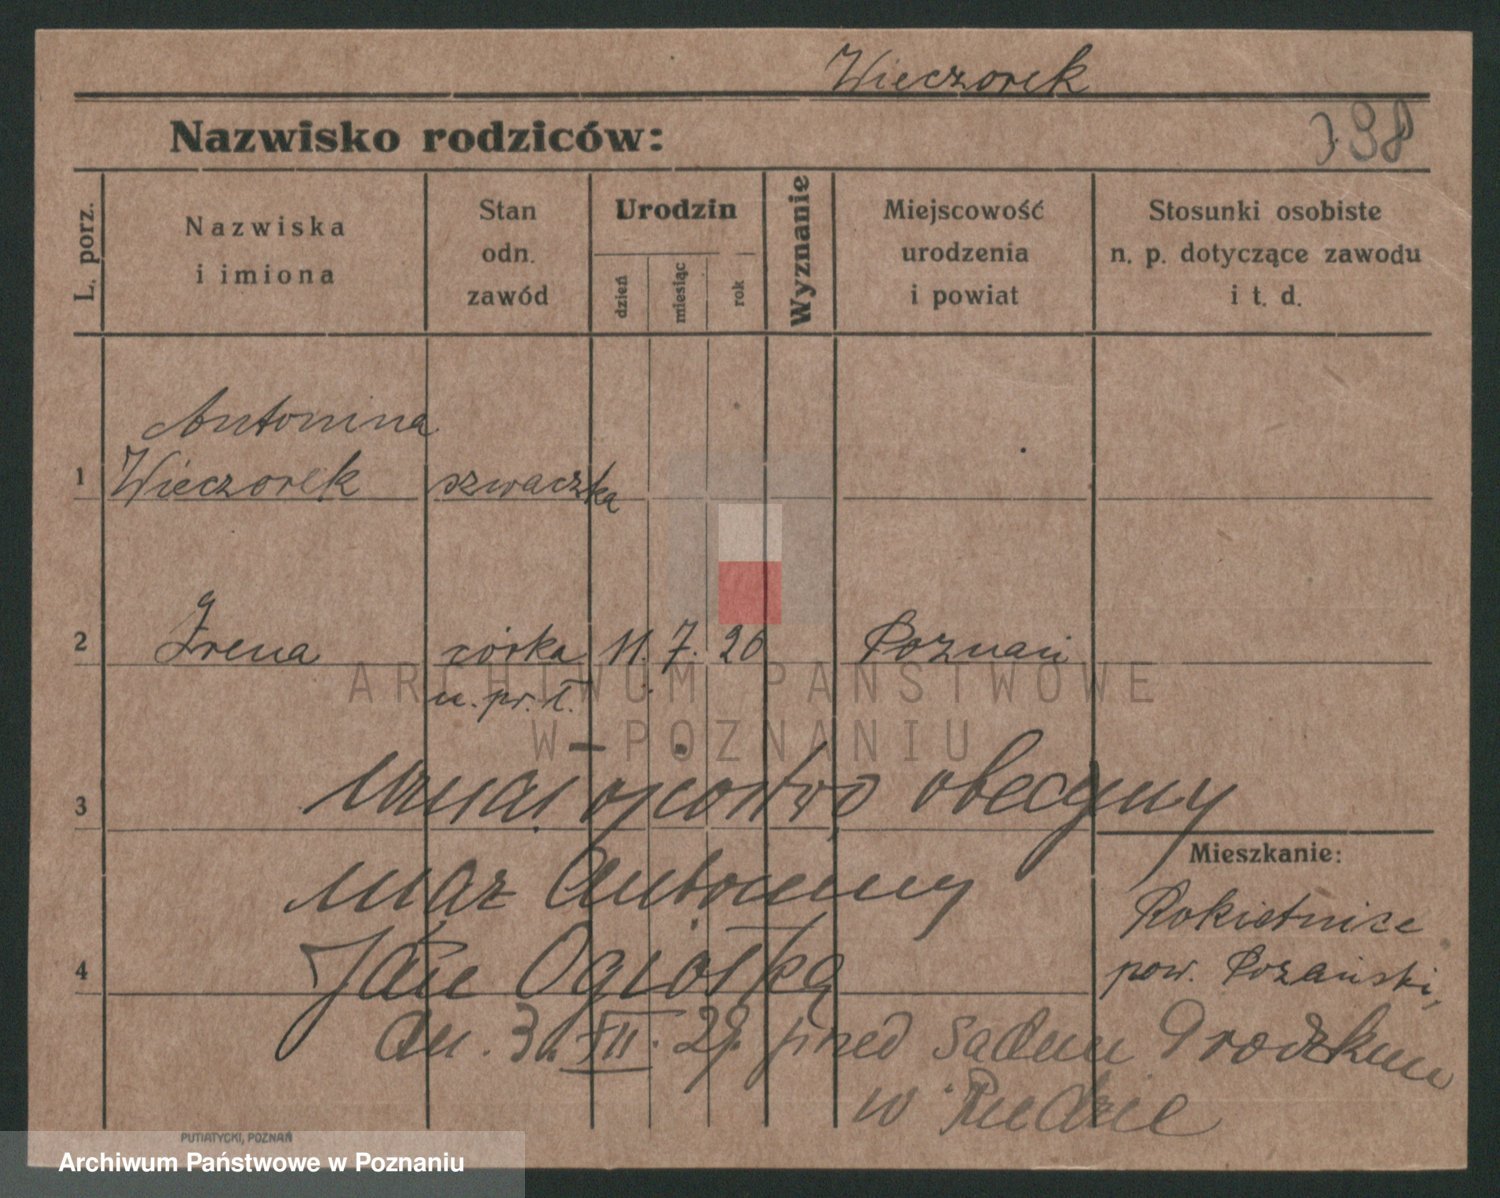 Wieczorek
Nazwisko rodziców:
L. porz.
Nazwiska
i imiona
Stan
odn.
zawód
Urodzin
dzień
miesiąc
rok
Wyznanie
Miejscowość
urodzenia
i powiat
Stosunki osobiste
n. p. dotyczące zawodu
i t. d.
Antonina
1 Wieczorek szwaczka
2 Irena córka 11. 7. 26 Poznań
ARCHIWUM PAŃSTWOWE
W POZNANIU
obecny
3
Mieszkanie:
mąż Antoniny
Rokietnice
4 Jan
pow. Pozański,
dn. XII. przed Sądem Grodzkim
w Rudzie
PUTIATYCKI, POZNAŃ
Archiwum Państwowe w Poznaniu